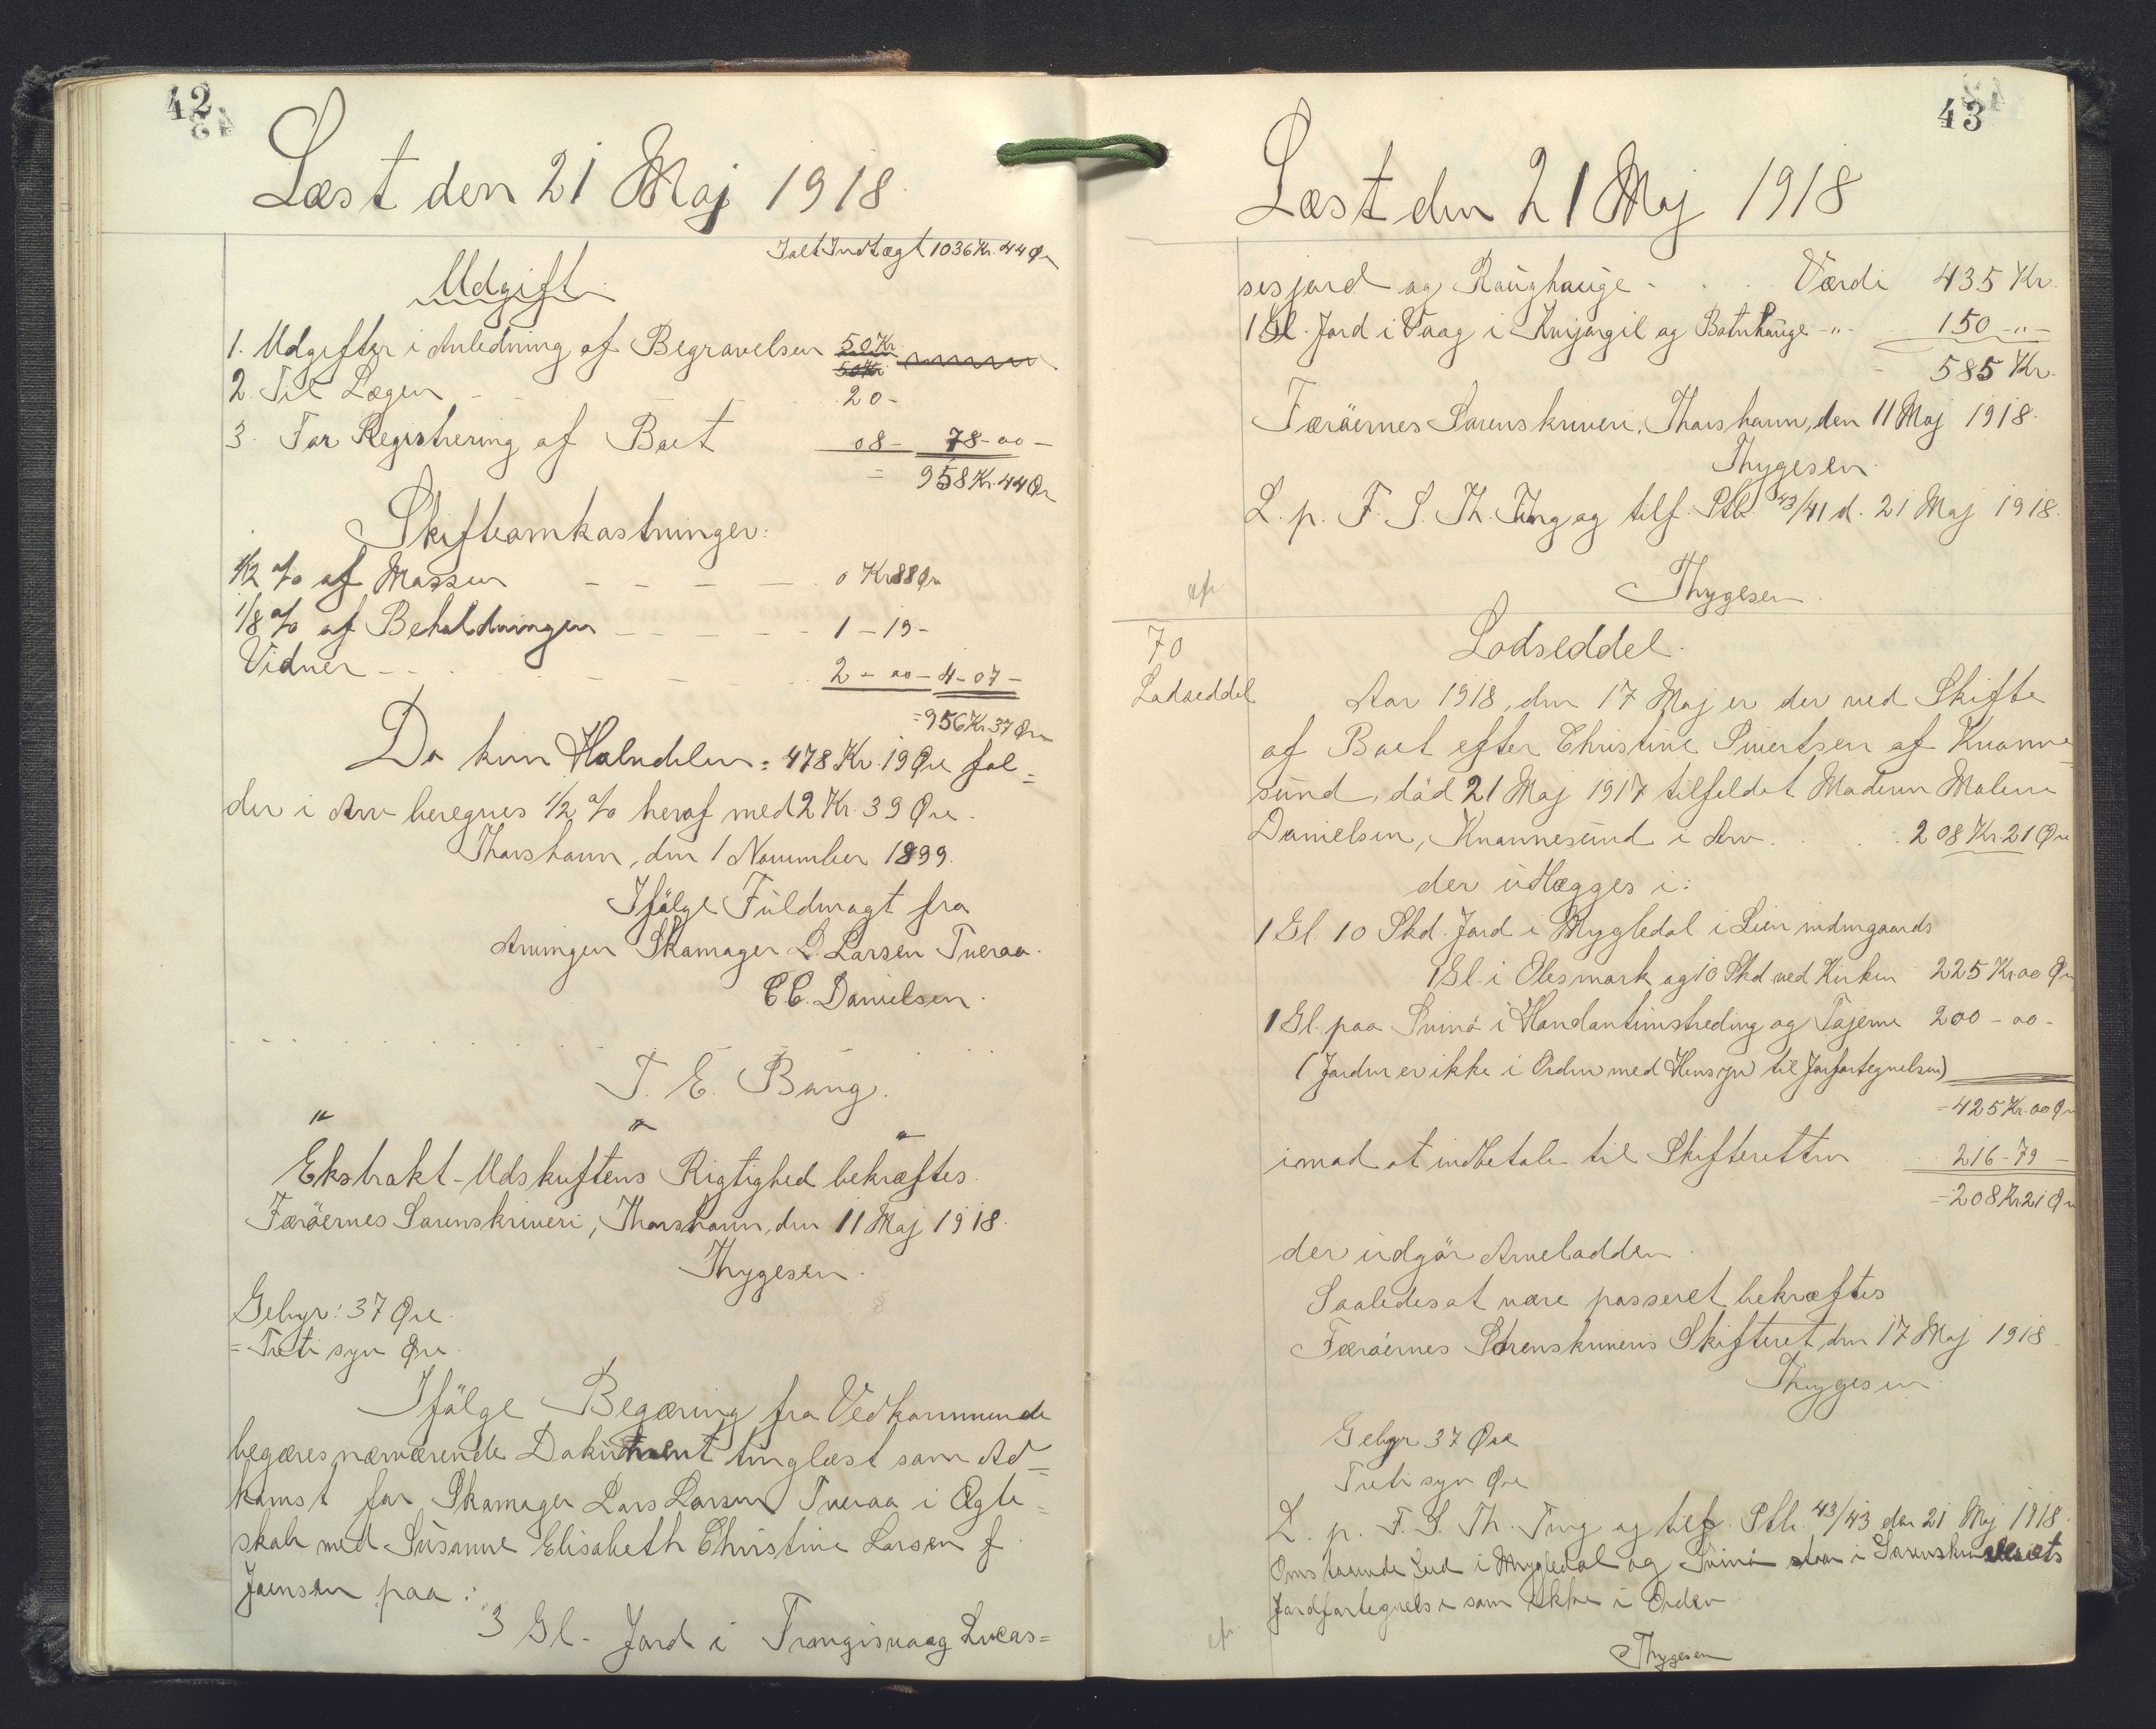 42
Læst den 21 Maj 1918.
Ialt Indtægt 1036 Kr. 44 Ør
Udgift.
1. Udgifter i Anledning af Begravelsen 50 Kr
50 Kr
2. Til Lægen - - . 20 -
3. For Registrering af Boet 08 - 78-00-
= 958 Kr. 44 Ør
Skifteomkostninger:
1/2 % af Massen - - - - 0 Kr 88 Ør
1/8 % af Beholdningen - - - - 1 - 19 -
Vidner - - . - - . 2 - 00 - 4 - 07 -
= 956 Kr. 37 Øre
Da kun Halvdelen = 478 Kr. 19 Øre fal=
der i Arv beregnes 1/2 % heraf med 2 Kr. 39 Øre.
Thorshavn, den 1 November 1899.
Ifølge Fuldmagt fra
Arvingen Skomager L. Larsen Tveraa.
C.C. Danielsen.
T. E. Bang.
" " "
Ekstrakt-Udskriftens Rigtighed bekræftes.
Færøernes Sorenskriveri, Thorshavn, den 11 Maj 1918.
Thygesen.
Gebyr: 37 Øre.
= Treti syv Øre.
Ifølge Begæring fra Vedkommende
begæres nærværende Dokument tinglæst som Ad=
komst for Skomager Lars Larsen Tveraa i Ægte=
skab med Susanne Elisabeth Christine Larsen f.
Joensen paa:
3 Gl. Jord i Trangisvaag Lucas=
43
Læst den 21 Maj 1918
sesjord og Roughauge - . . . Værdi 435 Kr.
1 Gl. Jord i Vaag i Kvijargil og Botnhauge -"- 150 -"-
= 585 Kr.
Færøernes Sorenskriveri, Thorshavn, den 11 Maj 1918.
Thygesen.
L. p. F. S. Th. Ting og tilf. Ptb. 43/41 d. 21 Maj 1918.
Thygesen.
70
Lodseddel
Lodseddel.
Aar 1918, den 17 Maj er der ved Skifte
af Boet efter Christine Sivertsen af Kvanne=
sund, død 21 Maj 1917 tilfeldet Moderen Malene
Danielsen, Kvannesund i Arv . . . 208 Kr. 21 Øre
der udlægges i:
1 Gl. 10 Skd. Jord i Mygledal i Lien nidengaards
1 Gl. i Olesmark og 10 Skd ved Kirken 225 Kr. 00 Ør
1 Gl. paa Svinø i Handantimstreding og Tajerne 200 - 00 -
(Jorden er ikke i Orden med Hensyn til Jorfortegnelsen)
= 425 Kr. 00 Ør
imod at indbetale til Skifteretten 216 - 79 -
= 208 Kr 21 Ør
der udgør Arvelodden.
Saaledes at være passeret bekræftes
Færøernes Sorenskriveris Skifteret, den 17 Maj 1918.
Thygesen.
Gebyr 37 Øre
Treti syv Øre
L. p. F. S. Th. Ting og tilf. Ptb. 43/43 den 21 Maj 1918.
Omstaaende Jord i Mygledal og Svinø staar i Sorenskriveriets
Jordfortegnelse som ikke i Orden
Thygesen